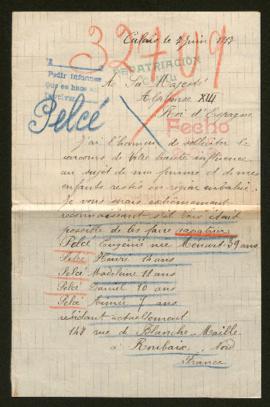 32709
Calais le 2 juin 1917
REPATRIACIÓN
A
Pedir informes
que se hace en
A Sa Majesté
Alphonse XIII
Roi d'Espagne
Pelcé
Fecho
J'ai l'honneur de solliciter le
concours de votre haute influence
au sujet de ma femme et de mes
enfants restés en région envahie.
Je vous serais extrêmement
reconnaissant s'il vous était
possible de les faire rapatrier
Pelcé Eugénie née Monard 39 ans
Pelcé Henri 14 ans
Pelcé Madeleine 11 ans
Pelcé Daniel 10 ans
Pelcé Aimée 7 ans
résidant actuellement
148 rue de Blanche-Maille
à Roubaix Nord
France